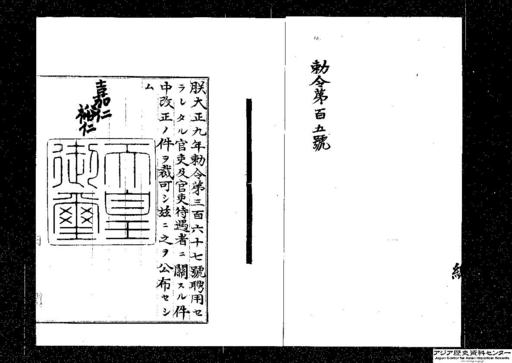 勅令第百五號
朕大正九年勅令第三百六十七號聘用セ
ラレタル官吏及官吏待遇者ニ關スル件
中改正ノ件ヲ裁可シ玆ニ之ヲ公布セシ
ム
嘉仁
裕仁
天皇
御璽
アジア歴史資料センター
Japan Center for Asian Historical Records